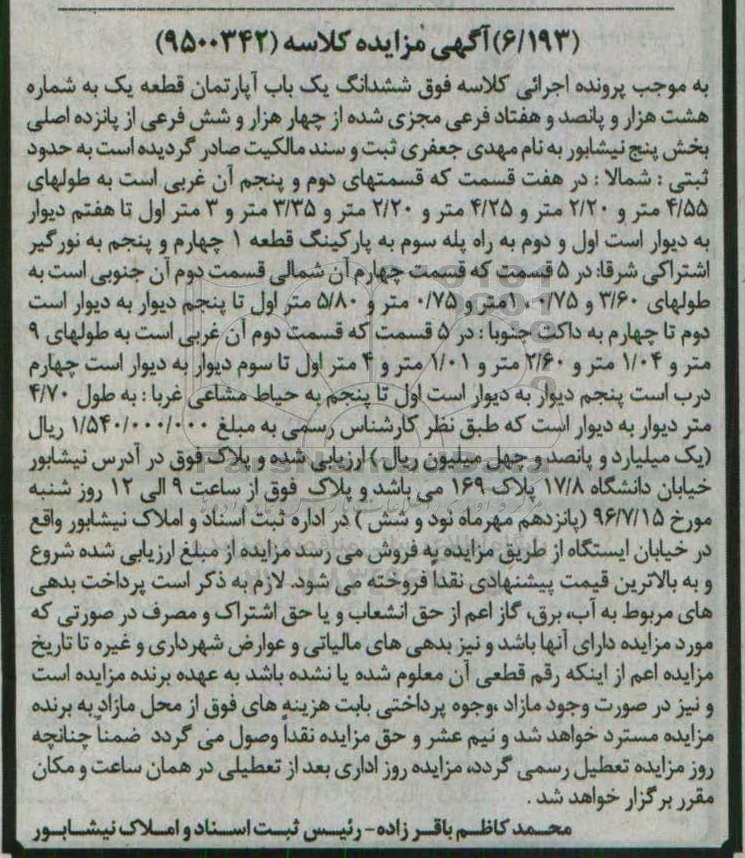 (۶/۱۹۳) آگهی مزایده کلاسه (۹۵۰۰۳۴۲)
به موجب پرونده اجرائی کلاسه فوق ششدانگ یک باب آپارتمان قطعه یک به شماره
هشت هزار و پانصد و هفتاد فرعی مجزی شده از چهار هزار و شش فرعی از پانزده اصلی
بخش پنج نیشابور به نام مهدی جعفری ثبت و سند مالکیت صادر گردیده است به حدود
ثبتی : شمالا : در هفت قسمت که قسمتهای دوم و پنجم آن غربی است به طولهای
۴/۵۵ متر و ۲/۲۰ متر و ۴/۲۵ متر و ۲/۲۰ متر و ۳/۳۵ متر و ۳ متر اول تا هفتم دیوار
به دیوار است اول و دوم به راه پله سوم به پارکینگ قطعه ۱ چهارم و پنجم به نورگیر
اشتراکی شرقا: در ۵ قسمت که قسمت چهارم آن شمالی قسمت دوم آن جنوبی است به
طولهای ۳/۶۰ و ۰/۷۵. ۱متر و ۰/۷۵ متر و ۵/۸۰ متر اول تا پنجم دیوار به دیوار است
دوم تا چهارم به داکت جنوبا : در ۵ قسمت که قسمت دوم آن غربی است به طولهای ۹
متر و ۱/۰۴ متر و ۲/۶۰ متر و ۱/۰۱ متر و ۴ متر اول تا سوم دیوار به دیوار است چهارم
درب است پنجم دیوار به دیوار است اول تا پنجم به حیاط مشاعی غربا : به طول ۴/۷۰
متر دیوار به دیوار است که طبق نظر کارشناس رسمی به مبلغ ۱/۵۴۰/۰۰۰/۰۰۰ ریال
(یک میلیارد و پانصد و چهل میلیون ریال ) ارزیابی شده و پلاک فوق در آدرس نیشابور
خیابان دانشگاه ۱۷/۸ پلاک ۱۶۹ می باشد و پلاک فوق از ساعت ۹ الی ۱۲ روز شنبه
مورخ ۹۶/۷/۱۵ (پانزدهم مهرماه نود و شش ) در اداره ثبت اسناد و املاک نیشابور واقع
در خیابان ایستگاه از طریق مزایده به فروش می رسد مزایده از مبلغ ارزیابی شده شروع
و به بالاترین قیمت پیشنهادی نقداً فروخته می شود. لازم به ذکر است پرداخت بدهی
های مربوط به آب، برق، گاز اعم از حق انشعاب و یا حق اشتراک و مصرف در صورتی که
مورد مزایده دارای آنها باشد و نیز بدهی های مالیاتی و عوارض شهرداری و غیره تا تاریخ
مزایده اعم از اینکه رقم قطعی آن معلوم شده یا نشده باشد به عهده برنده مزایده است
و نیز در صورت وجود مازاد ،وجوه پرداختی بابت هزینه های فوق از محل مازاد به برنده
مزایده مسترد خواهد شد و نیم عشر و حق مزایده نقداً وصول می گردد ضمناً چنانچه
روز مزایده تعطیل رسمی گردد، مزایده روز اداری بعد از تعطیلی در همان ساعت و مکان
مقرر برگزار خواهد شد .
محمد کاظم باقر زاده - رئیس ثبت اسناد و املاک نیشابور